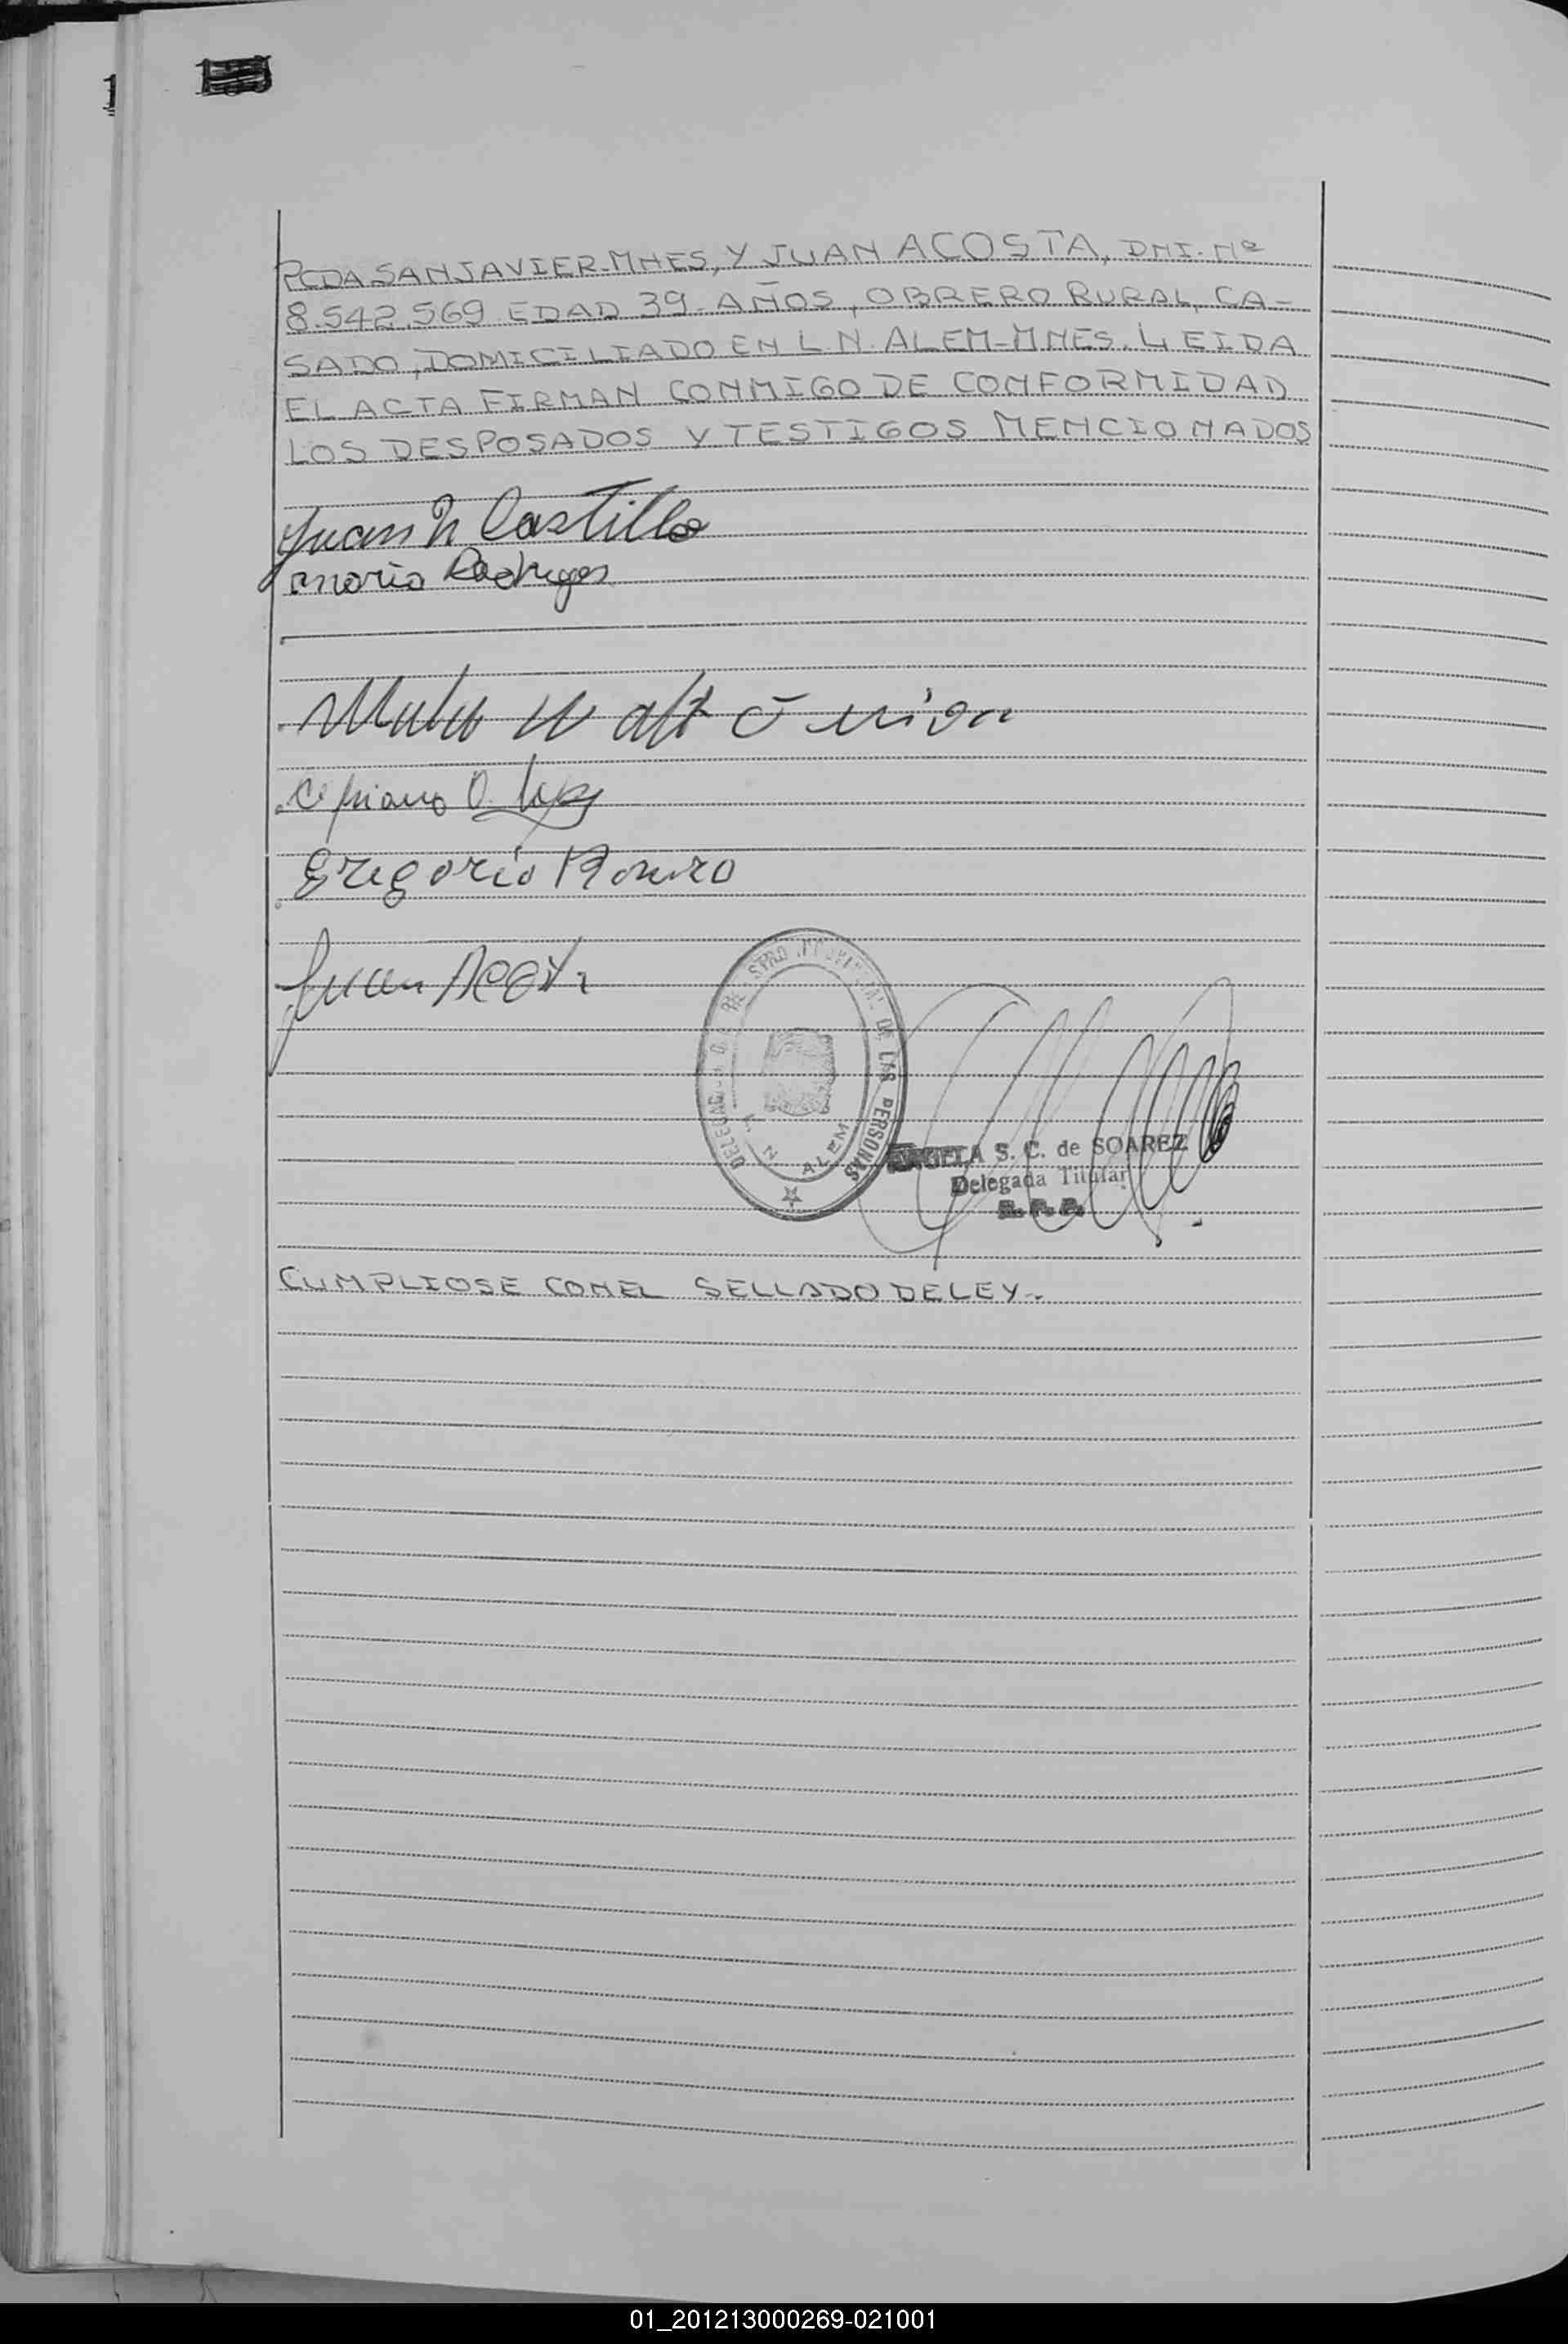 PCDA SAN JAVIER-MNES, Y JUAN ACOSTA, DNI. Nº
8.542.569 EDAD 39 AÑOS, OBRERO RURAL, CA-
SADO, DOMICILIADO EN L.N. ALEM-MNES. LEIDA
EL ACTA FIRMAN CONMIGO DE CONFORMIDAD
LOS DESPOSADOS Y TESTIGOS MENCIONADOS
Juan R Castillo
Maria Rodrigos
Cipriano O. Lopez
Gregorio Romero
Juan Acosta
REGISTRO PROVINCIAL DE LAS PERSONAS
DELEGACION
L. N. ALEM
S. C. de SOAREZ
Delegada Titular
R. P. P.
CUMPLIOSE CON EL SELLADO DE LEY.-
01_201213000269-021001